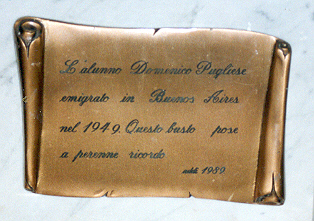 L'alunno Domenico Pugliese
emigrato in Buenos Aires
nel 1949. Questo busto pose
a perenne ricordo
1989